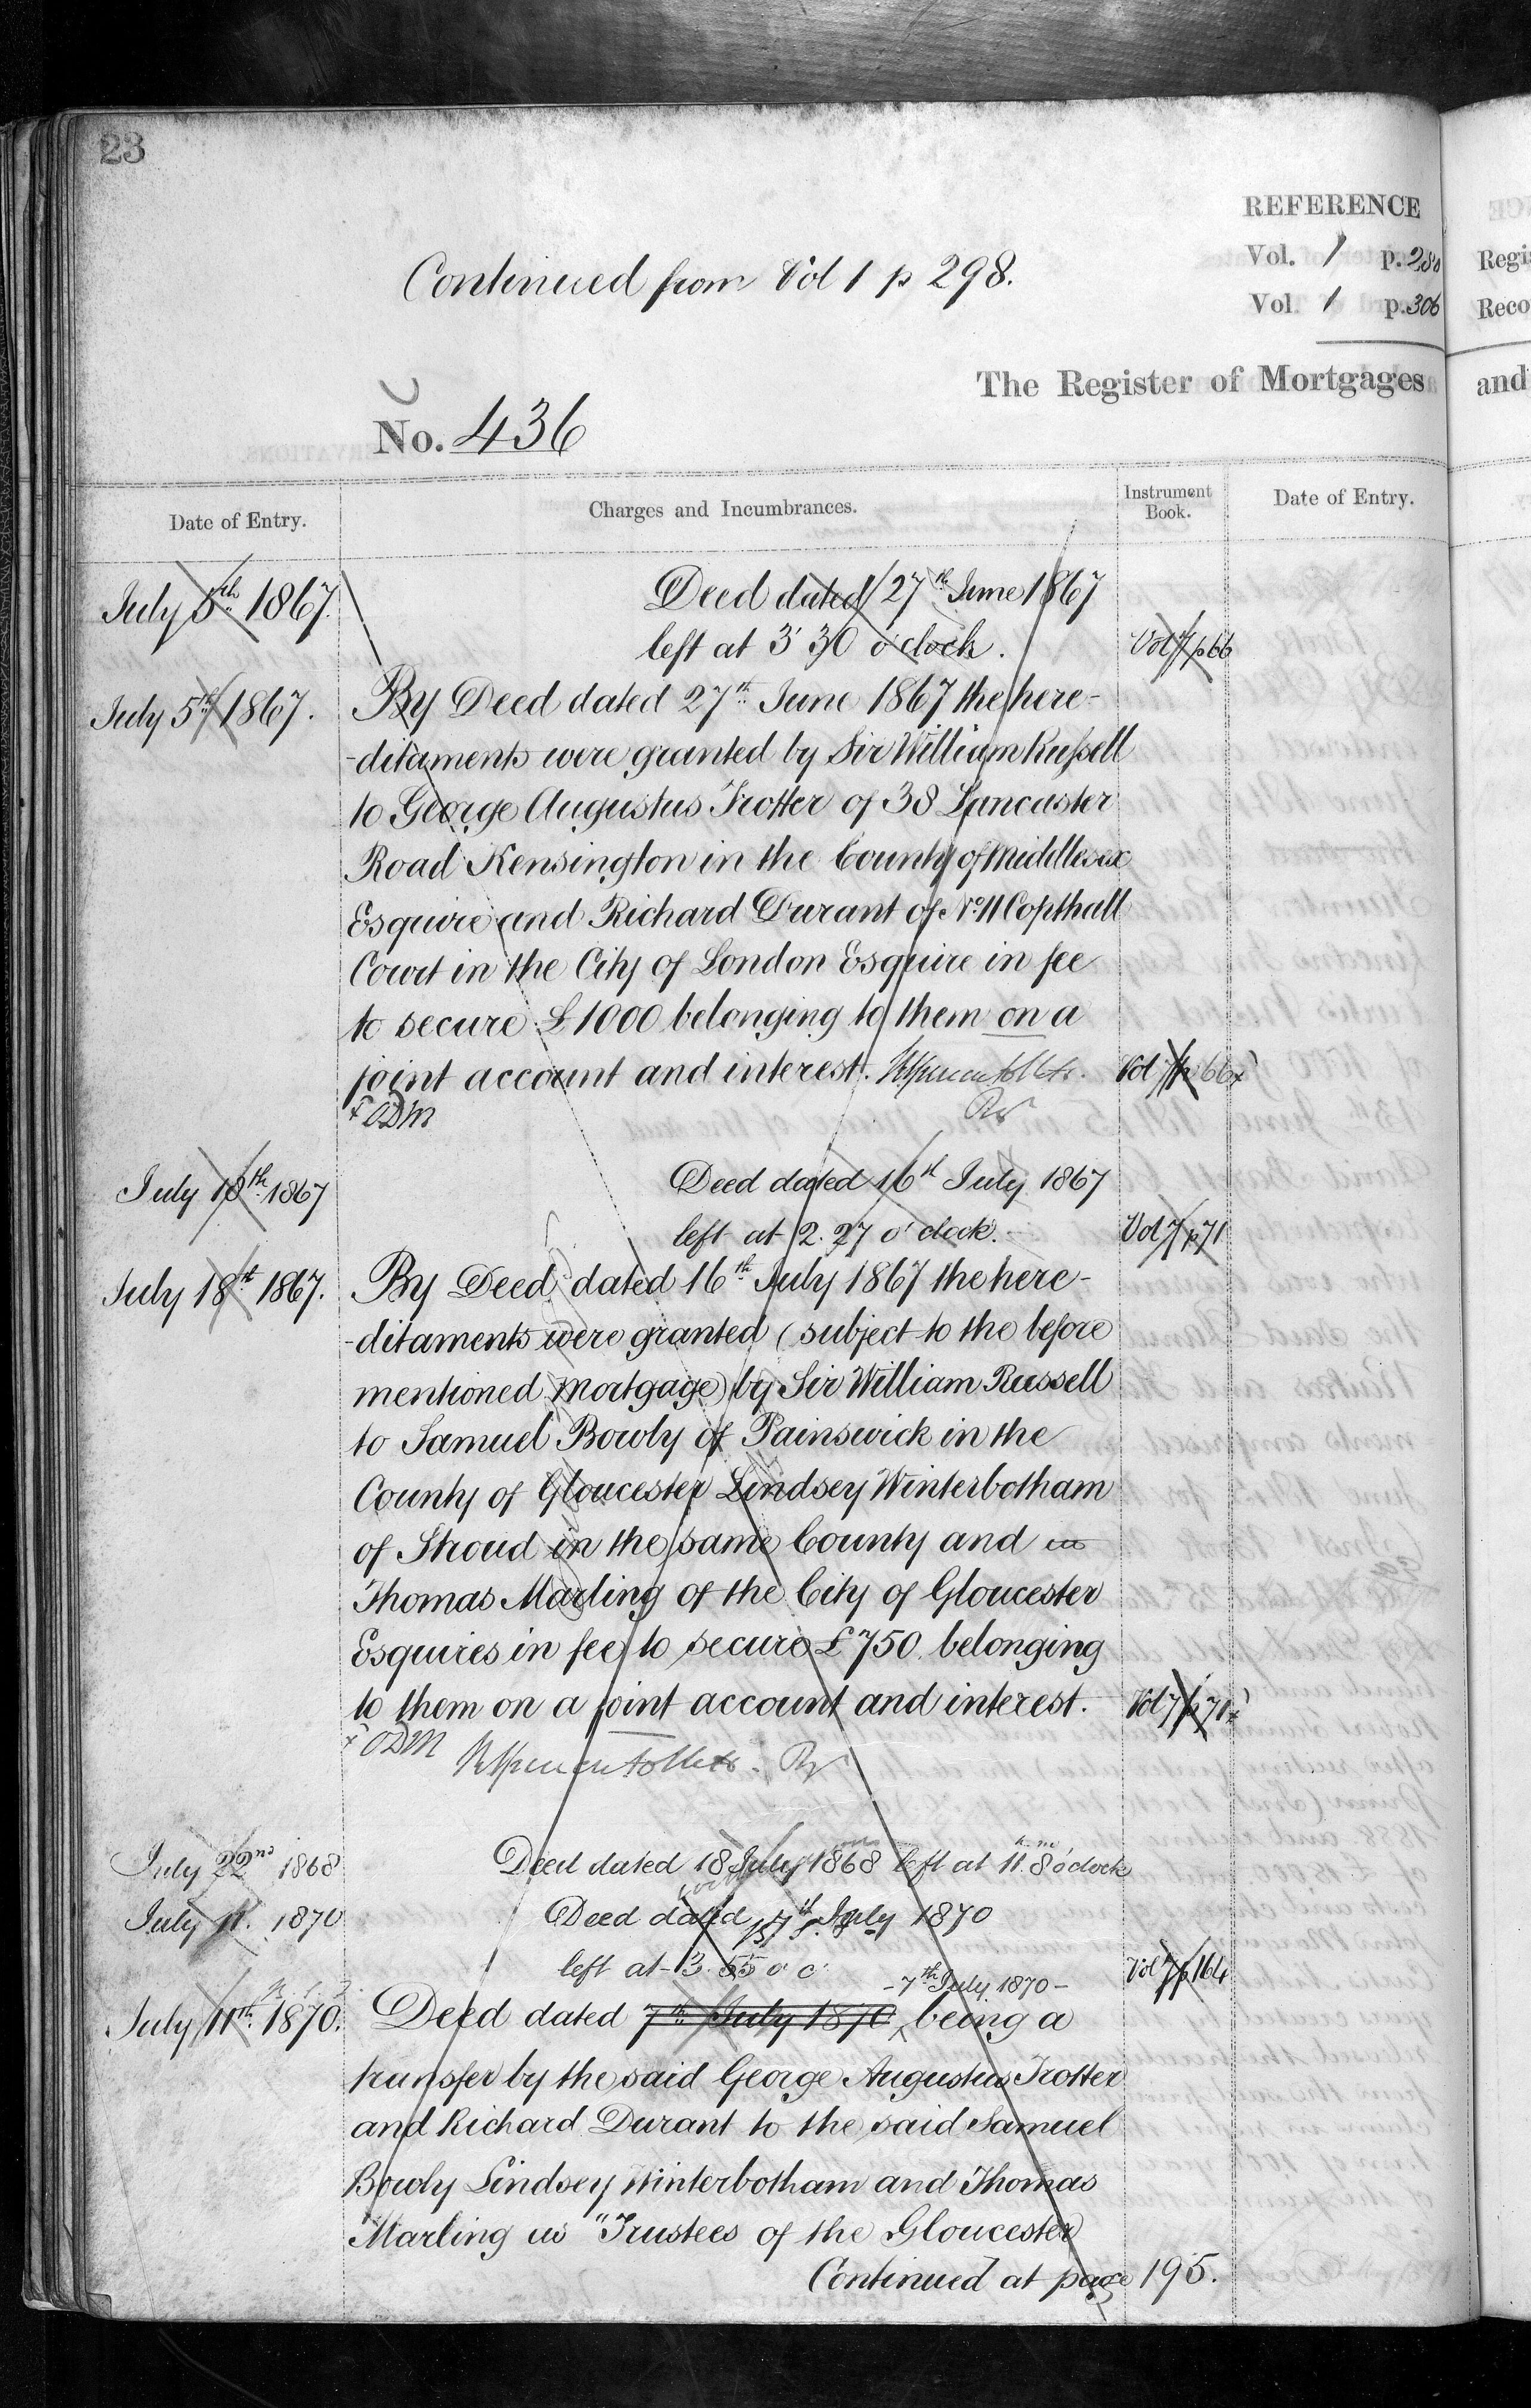 23
REFERENCE
Vol. 1 p. 280
Vol. 1 p. 306
Continued from Vol 1 p 298.
The Register of Mortgages
and
Regis
Reco
No. 436
Date of Entry.
Charges and Incumbrances.
Instrument Book.
Date of Entry.
July 5th 1867.
Deed dated 27th June 1867
left at 3 30 o'clock.
Vol 7 p 66
July 5th 1867.
By Deed dated 27th June 1867 the here-
-ditaments were granted by Sir William Russell
to George Augustus Trotter of 38 Lancaster
Road Kensington in the County of Middlesex
Esquire and Richard Durant of No 11 Copthall
Court in the City of London Esquire in fee
to secure £1000 belonging to them on a
joint account and interest.
Vol 7 p 66 x
x ODM
July 18th 1867
Deed dated 16th July 1867
left at 2.27 o'clock.
Vol 7 p 71
July 18th 1867.
By Deed dated 16th July 1867 the here-
-ditaments were granted (subject to the before
mentioned Mortgage) by Sir William Russell
to Samuel Bowly of Painswick in the
County of Gloucester Lindsey Winterbotham
of Stroud in the same County and in
Thomas Marling of the City of Gloucester
Esquires in fee to secure £750 belonging
to them on a joint account and interest.
Vol 7 p 71 x
x ODM
July 22nd 1868
Deed dated 18 July 1868 left at 11.8 o'clock
a.m
July 11. 1870
Deed dated 7th July 1870
left at 3.55 o'c.
Vol 7 p 164
-7th July 1870-
July 11th 1870.
Deed dated 7th July 1870 ^ being a
transfer by the said George Augustus Trotter
and Richard Durant to the said Samuel
Bowly Lindsey Winterbotham and Thomas
Marling as "Trustees of the Gloucester
Continued at page 195.